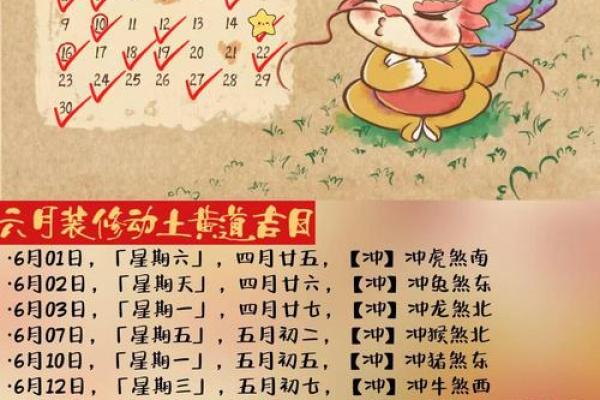 9 10 11 12 13 14
16 17 18 19 20 21 22
23 24 25 26 27 28 29
30
六月装修动土黄道吉日
·6月01日，「星期六」，四月廿五，【冲】冲虎煞南
·6月02日，「星期天」，四月廿六，【冲】冲兔煞东
·6月03日，「星期一」，四月廿七，【冲】冲龙煞北
·6月07日，「星期五」，五月初二，【冲】冲猴煞北
·6月10日，「星期一」，五月初五，【冲】冲猪煞东
·6月12日，「星期三」，五月初七，【冲】冲牛煞西